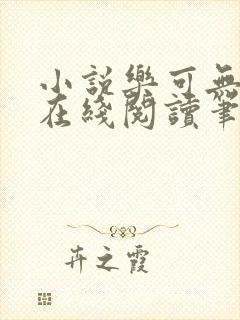 小说樂可無
在綫閱讀筆
卉之霞